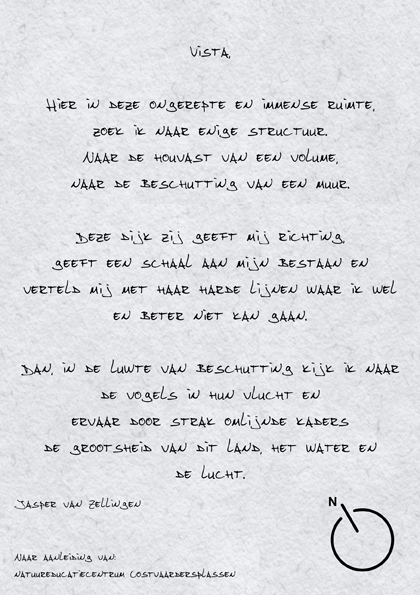 Vista,
Hier in deze ongerepte en immense ruimte,
zoek ik naar enige structuur.
Naar de houvast van een volume,
naar de beschutting van een muur.
Deze dijk zij geeft mij richting,
geeft een schaal aan mijn bestaan en
verteld mij met haar harde lijnen waar ik wel
en beter niet kan gaan.
Dan, in de luwte van beschutting kijk ik naar
de vogels in hun vlucht en
ervaar door strak omlijnde kaders
de grootsheid van dit land, het water en
de lucht.
Jasper van Zellingen
N
Naar aanleiding van:
Natuureducatiecentrum Oostvaardersplassen